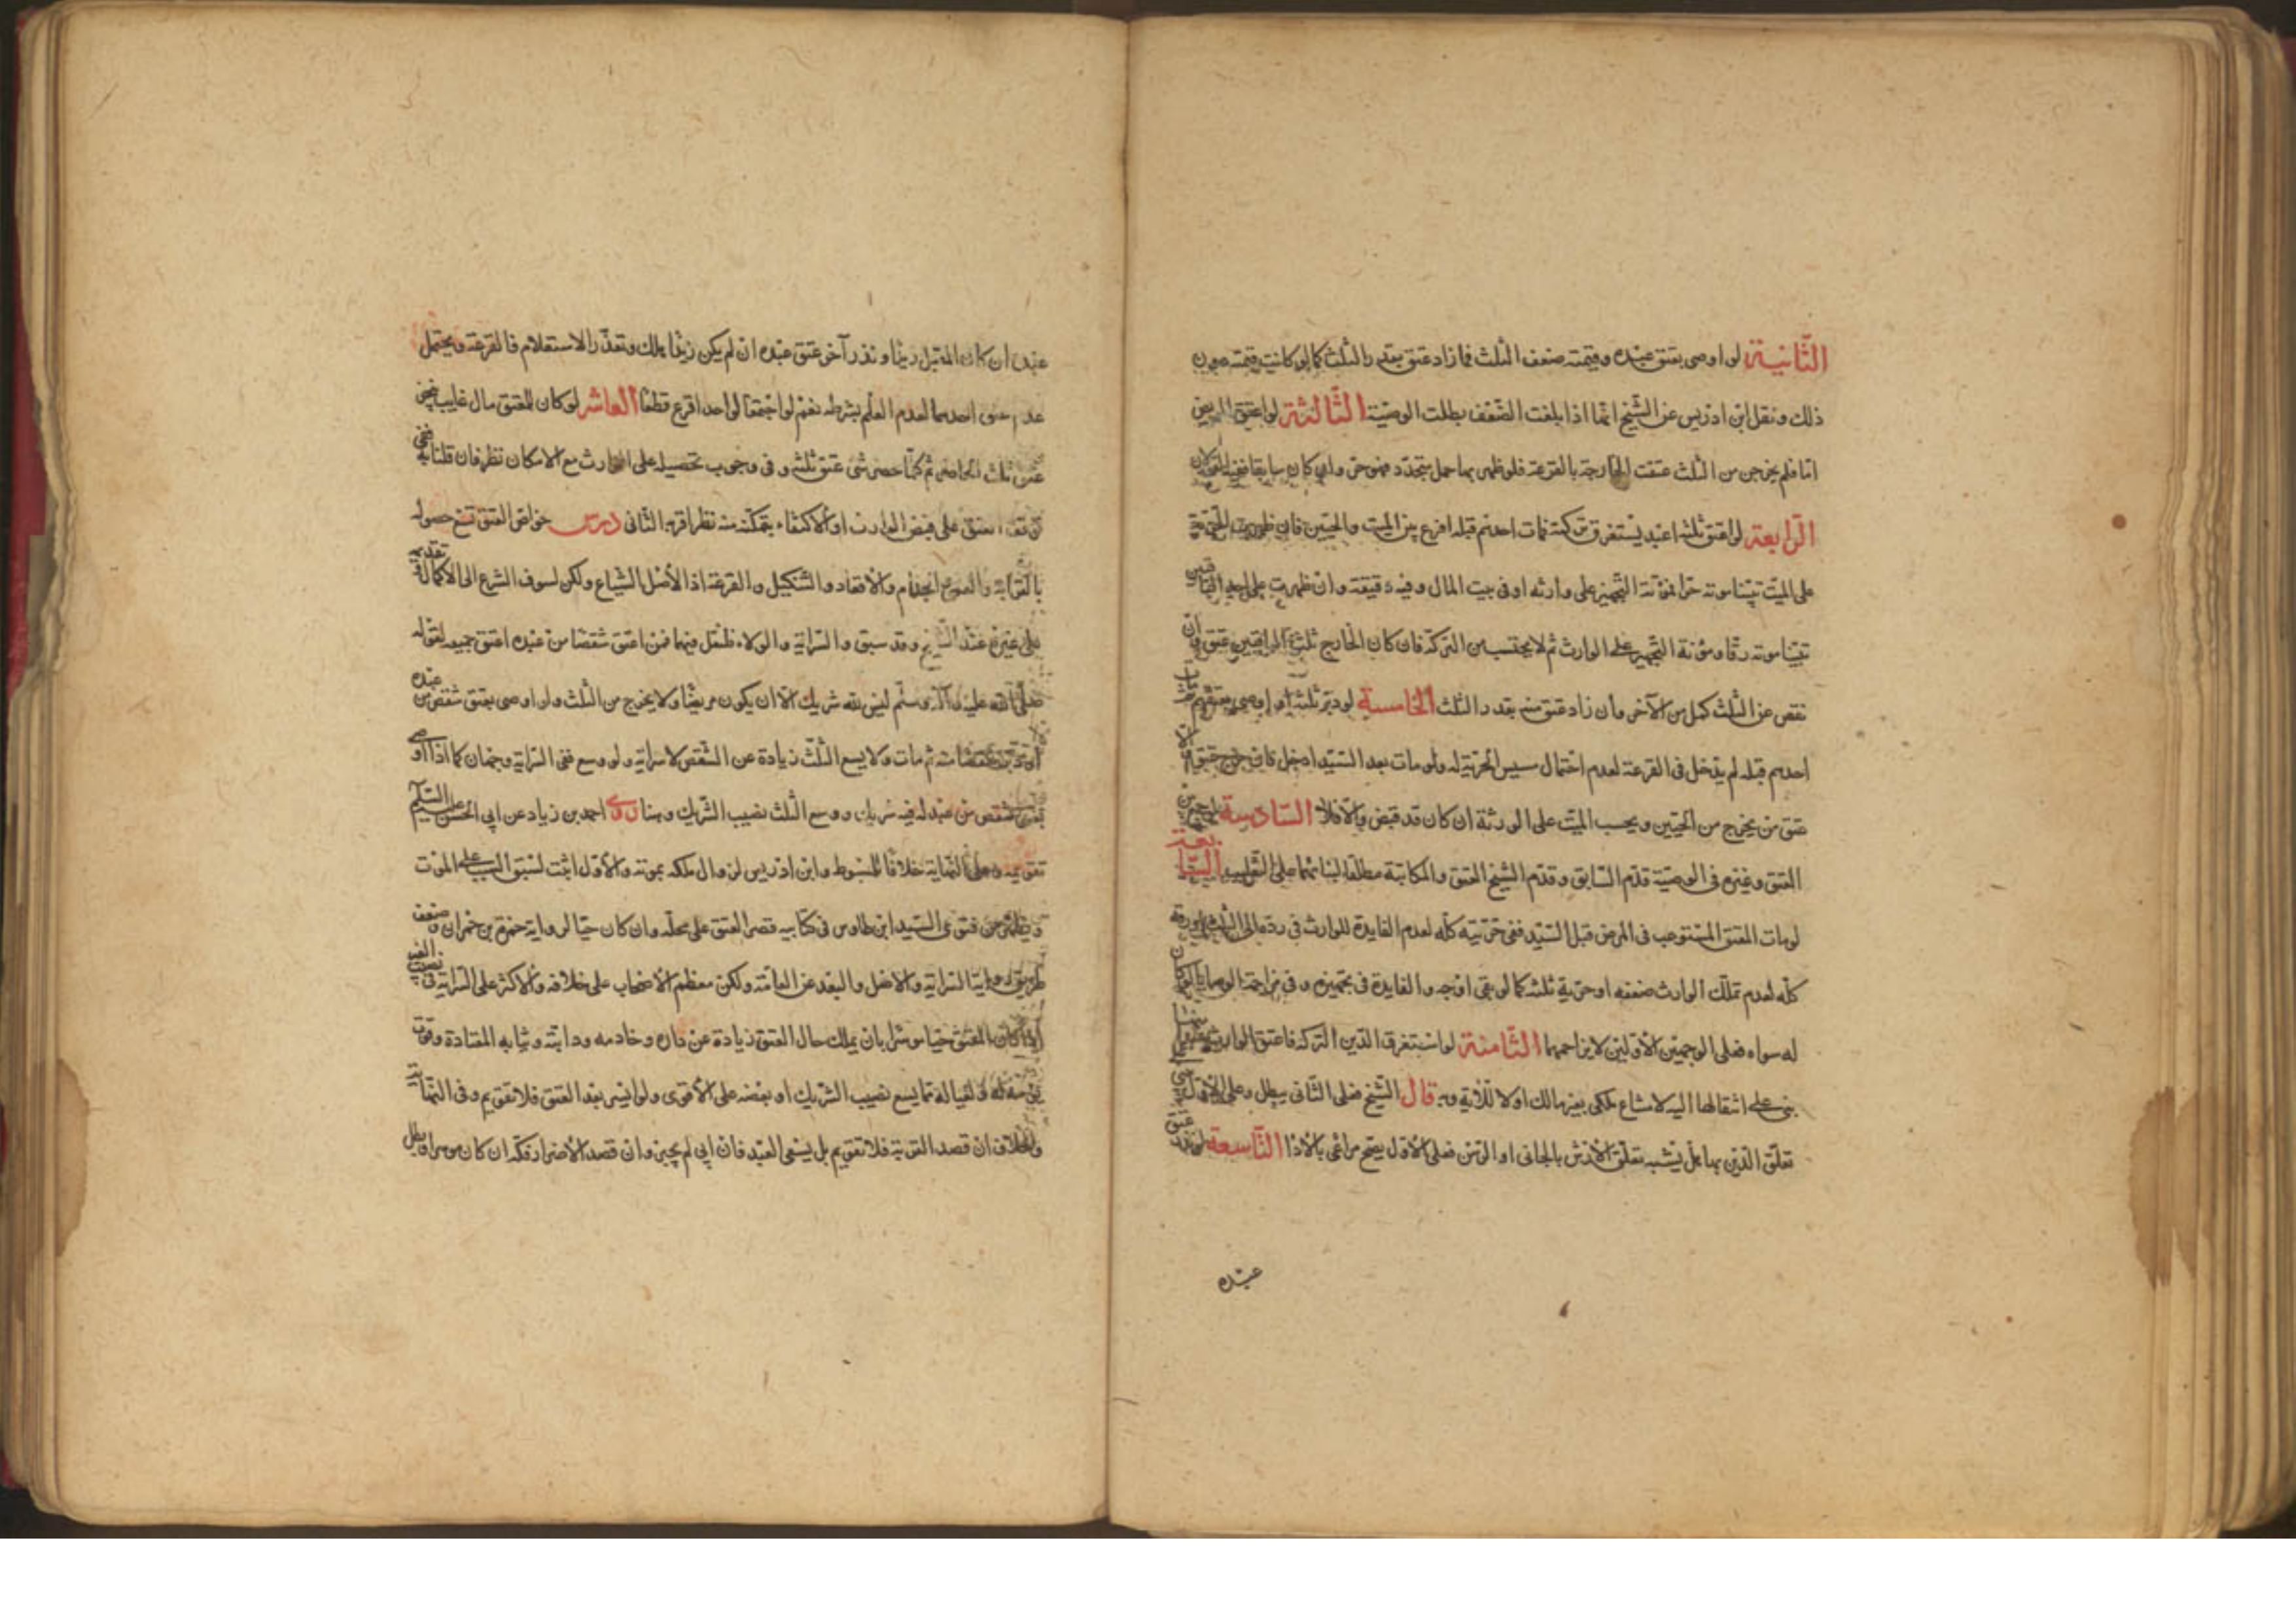 الثانية لو اوصى بعتق عبده وقيمته ضعف الثلث فما زاد عتق بقدر الثلث كما لو كانت قيمته دون
ذلك ونقل ابن ادريس عن الشيخ انها اذا بلغت الضعف بطلت الوصية الثالثة لو اعتق المريض
اما فلم يخرجن من الثلث عتقت الخارجة بالقرعة فلو ظهر بها حمل متجدد فهو حر وان كان سابقا ففيه القولان
الرابعة لو اعتق ثلثه اعبد يستغرق تركته فمات احدهم قبله اقرع بين الميت والحيين فان ظهرت الحرية
على الميت تبينا موته حرا فمؤنة التجهيز على وارثه او في بيت المال وفيه دقيقة وان ظهرت على احد الباقيين
تبينا موته رقا ومؤنة التجهيز على الوارث ثم لا يحتسب من التركة فان كان الخارج ثلث الباقيين عتق وان
نقص عن الثلث كمل من الآخر وان زاد عتق منه بقدر الثلث الخامسة لو دبر ثلثه او اوصى بعتقهم فمات
احدهم قبله لم يدخل في القرعة لعدم احتمال سبب الحرية له ولو مات بعد السيد ادخل فان خرج عتق والا
عتق من يخرج من الحيين ويحسب الميت على الورثة ان كان قد قبض والا فلا السادسة لو جمع بين
العتق وغيره في الوصية قدم السابق وقدم الشيخ العتق والمكاتبة مطلقا لبنائهما على التغليب السابعة
لو مات المعتق المستوعب في المرض قبل السيد ففي حريته كله لعدم الفايدة للوارث في رده الى الثلث او رقه
كله لعدم تملك الوارث ضعفه او حرية ثلثه كما لو بقى اوجه والفايدة في تجهيزه وفي مزاحمة الوصايا لو كان
له سواه فعلى الوجهين الاولين لا يزاحمها الثامنة لو استغرق الدين التركة فاعتق الوارث منها
بنى على انتقالها اليه لامتناع ملك بغير مالك او لا للآية وبه قال الشيخ فعلى الثاني يبطل وعلى الاول
تعلق الدين بها هل يشبه تعلق الارش بالجاني او الرهن فعلى الاول يصح مراعى بالاداء التاسعة لو نذر عتق
عبده
عبده ان كان المقبل زيدا ونذر آخر عتق عبده ان لم يكن زيدا بملك وتعذر الاستعلام فالقرعة ويحتمل
عدم عتق احدهما لعدم العلم بشرطه نعم لو اجتمعا لواحد اقرع قطعا العاشر لو كان للمعتق مال غايب نجز
عتق ثلث الحاضر ثم كلما حصر شى عتق ثلثه وفي وجوب تحصيله على الوارث مع الامكان نظر فان قلنا به ففي
توقف العتق على قبض الوارث او الاكتفاء بتمكنه منه نظر اقربه الثاني درس خواص العتق تسع حصوله
بالقرابة والعوض الجذام والاقعاد والتنكيل والقرعة اذ الاصل الشياع ولكن لتشوف الشرع الى الاكمال وتقديمه
على غيره عند الشيخ وقد سبق والسراية والولاء فلنقل فيهما فمن اعتق شقصا من عبده اعتق جميعه لقوله
صلى الله عليه وآله وسلم ليس لله شريك الا ان يكون مريضا ولا يخرج من الثلث ولو اوصى بعتق شقص من عبده
او دبر شقصا منه ثم مات ولا يسع الثلث زيادة عن الشقص لا سراية ولو وسع ففي السراية وجهان كما اذا اوصى
بعتق شقص من عبد له فيه شريك ووسع الثلث نصيب الشريك وهنا روى احمد بن زياد عن ابى الحسن عليه السلام
تقويمه وعليه النهاية خلافا للمبسوط وابن ادريس لزوال ملكه بموته والاول اثبت لسبق السبب على الموت
وظهر من فتوى السيد ابن طاوس في كتابيه قصر العتق على محله وان كان حيا لرواية حمزة بن حمران وضعف
طريق رواية السراية والاصل والبعد عن العامة ولكن معظم الاصحاب على خلافه والاكثر على السراية في نصيب الغير
اذا كان المعتق حيا موسرا بان يملك حال العتق زيادة عن داره وخادمه ودابته وثيابه المعتادة وقوت
يوم له ولعياله مما يسع نصيب الشريك او بعضه على الاقوى ولو ايسر بعد العتق فلا تقويم وفي النهاية
والخلاف ان قصد القربة فلا تقويم بل يسعى العبد فان ابى لم يجبر وان قصد الاضرار فكه ان كان موسرا وبطل